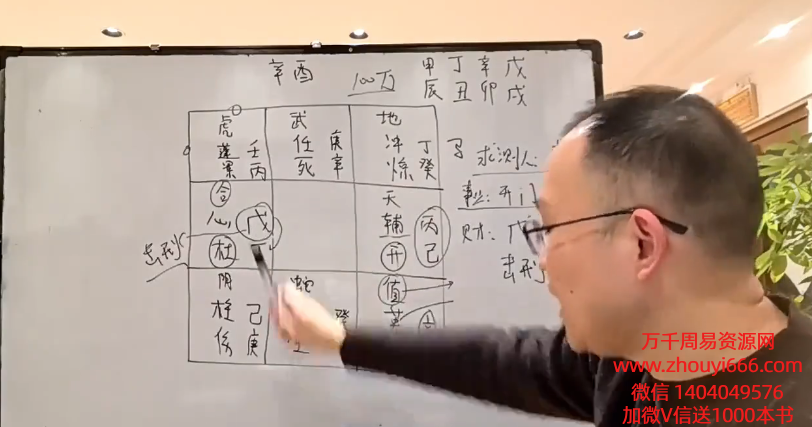 辛酉 100万 甲丁辛戊
辰丑卯戌
虎 武 地
蓬 壬 任 庚 冲 丁
丙 死 辛 癸
求测人:
合 天
心 戊 辅 丙
事业:开门
杜 开 己
财:戊
击刑
击刑
阴 蛇 值
柱 己 癸
庚
万千周易资源网
www.zhouyi666.com
微信 1404049576
加微V信送1000本书